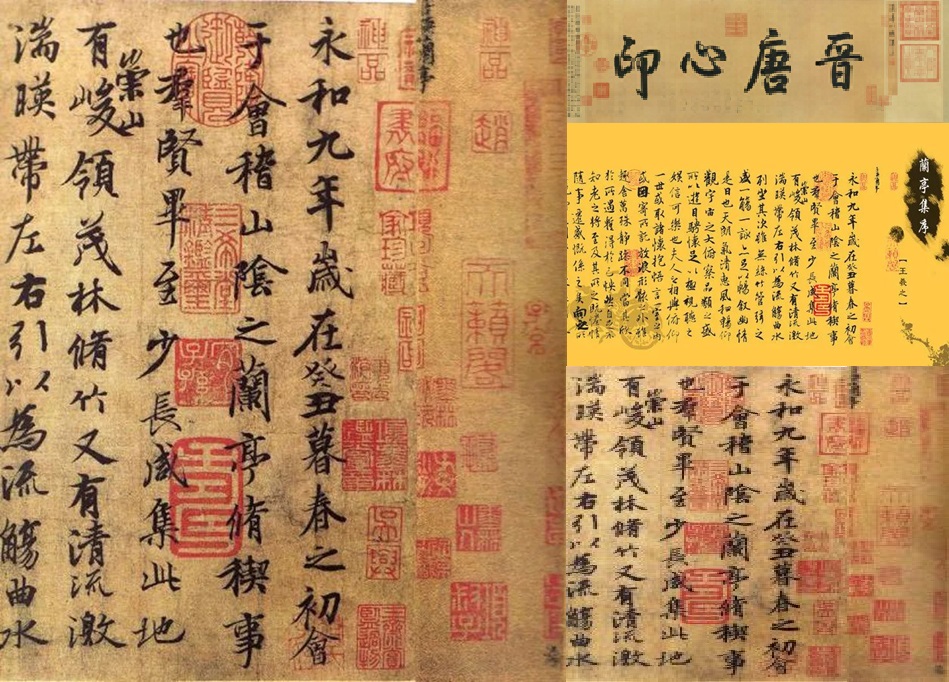 永和九年歲在癸丑暮春之初會
于會稽山陰之蘭亭脩稧事
也羣賢畢至少長咸集此地
有崇山峻領茂林脩竹又有清流激
湍暎帶左右引以為流觴曲水
晉唐心印
蘭亭集序
【王羲之】
永和九年歲在癸丑暮春之初會
于會稽山陰之蘭亭脩稧事
也羣賢畢至少長咸集此地
有崇山峻領茂林脩竹又有清流激
湍暎帶左右引以為流觴曲水
列坐其次雖無絲竹管弦之
盛一觴一詠亦足以暢叙幽情
是日也天朗氣清惠風和暢仰
觀宇宙之大俯察品類之盛
所以遊目騁懷足以極視聽之
娛信可樂也夫人之相與俯仰
一世或取諸懷抱悟言一室之內
或因寄所託放浪形骸之外雖
趣舍萬殊靜躁不同當其欣
於所遇暫得於己怏然自足不
知老之將至及其所之既惓情
隨事遷感慨係之矣向之所
永和九年歲在癸丑暮春之初會
于會稽山陰之蘭亭脩稧事
也羣賢畢至少長咸集此地
有崇山峻領茂林脩竹又有清流激
湍暎帶左右引以為流觴曲水